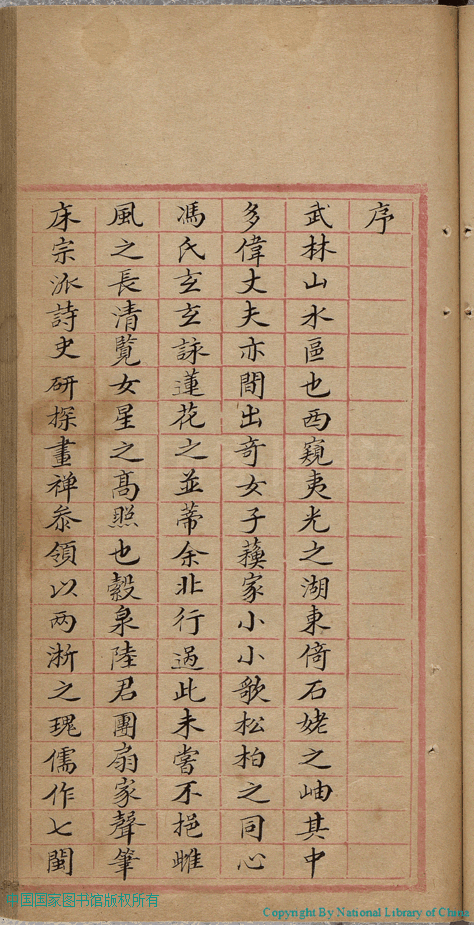 序
武林山水區也西窺夷光之湖東倚石姥之岫其中
多偉丈夫亦間出奇女子蘓家小小歌松柏之同心
馮氏玄玄詠蓮花之並蒂余非行過此未嘗不挹雌
風之長清覧女星之高照也榖泉陸君團扇家聲筆
床宗派詩史研探畫禅叅領以两浙之瑰儒作七閩
国国家图书馆版权所有
Copyright By National Library of China